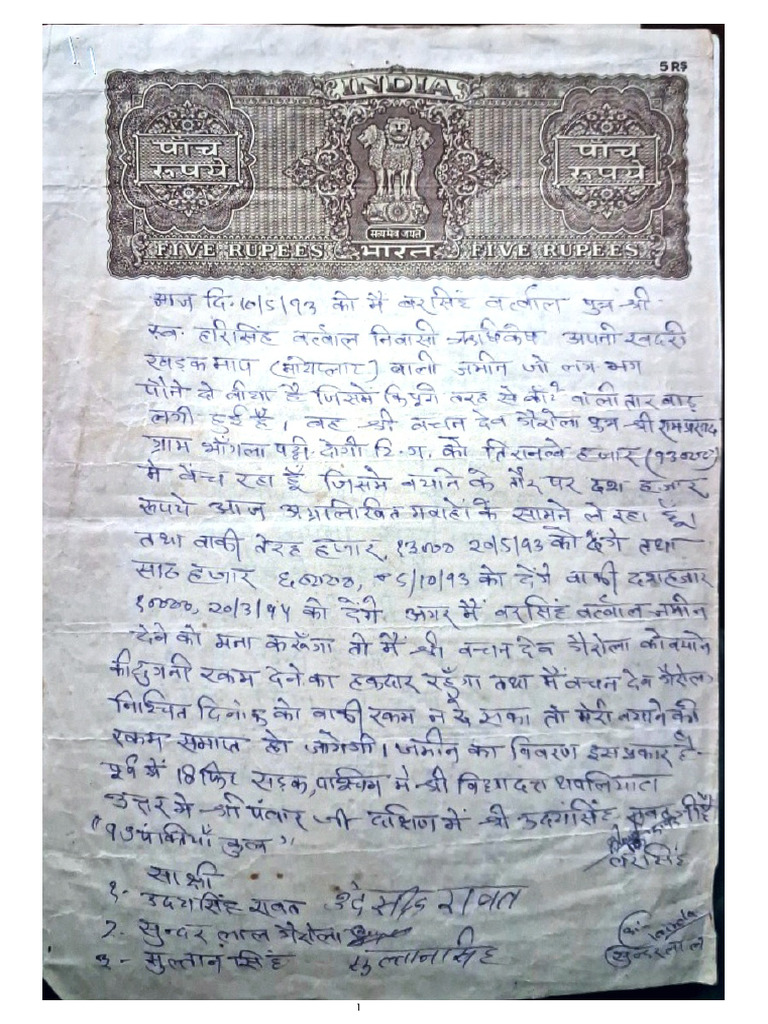 5 RS
INDIA
पाँच रुपये
पाँच रुपये
सत्यमेव जयते
FIVE RUPEES भारत FIVE RUPEES
आज दि. 10/5/93 को मै बरसिंह बर्त्वाल पुत्र श्री
स्व. हरिसिंह बर्त्वाल निवासी ऋषिकेष अपनी खदरी
खडक माप वाली जमीन जो लग भग
पौने दो बीघा है जिसमे कि पूरी तरह से वाली तार बाड़
लगी हुई है। वह श्री बच्चन देव गैरोला पुत्र श्री राम प्रसाद
ग्राम पट्टी दोगी टि. ग. को तिरानब्बे हजार
मे बेच रहा हूँ जिसमे बयाने के तौर पर दश हजार
रूपये आज अग्रलिखित गवाहों के सामने ले रहा हूँ।
तथा बाकी तेरह हजार, १३००० २०/5/93 को देंगे तथा
साठ हजार ६००००, 5/10/93 को देंगे बाकी दश हजार
१००००, 20/3/94 को देंगे अगर मैं बरसिंह बर्त्वाल जमीन
देने को मना करूँगा तो मैं श्री बच्चन देव गैरोला को बयाने
की दुगनी रकम देने का हकदार रहूँगा तथा मैं बच्चन देव गैरोला
निश्चित दिनांक को बाकी रकम न दे सका तो मेरी बयाने की
रकम समाप्त हो जायेगी। जमीन का विवरण इस प्रकार है-
पूर्व में 18 फिट सड़क, पश्चिम मे श्री विद्यादत्त थपलियाल
उत्तर मे श्री पंवार जी दक्षिण में श्री उदयसिंह रावत जी है
बरसिंह
साक्षी
१- उदयसिंह रावत उदे सींह रावत
2- सुन्दर लाल गैरोला
३- सुल्तान सिंह सुल्तान सिंह
सुन्दरलाल
1